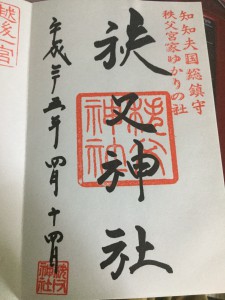 知知夫国総鎮守
秩父宮家ゆかりの社
秩父神社
秩父神社
平成二十五年四月十四日
秩父神社
越後一宮